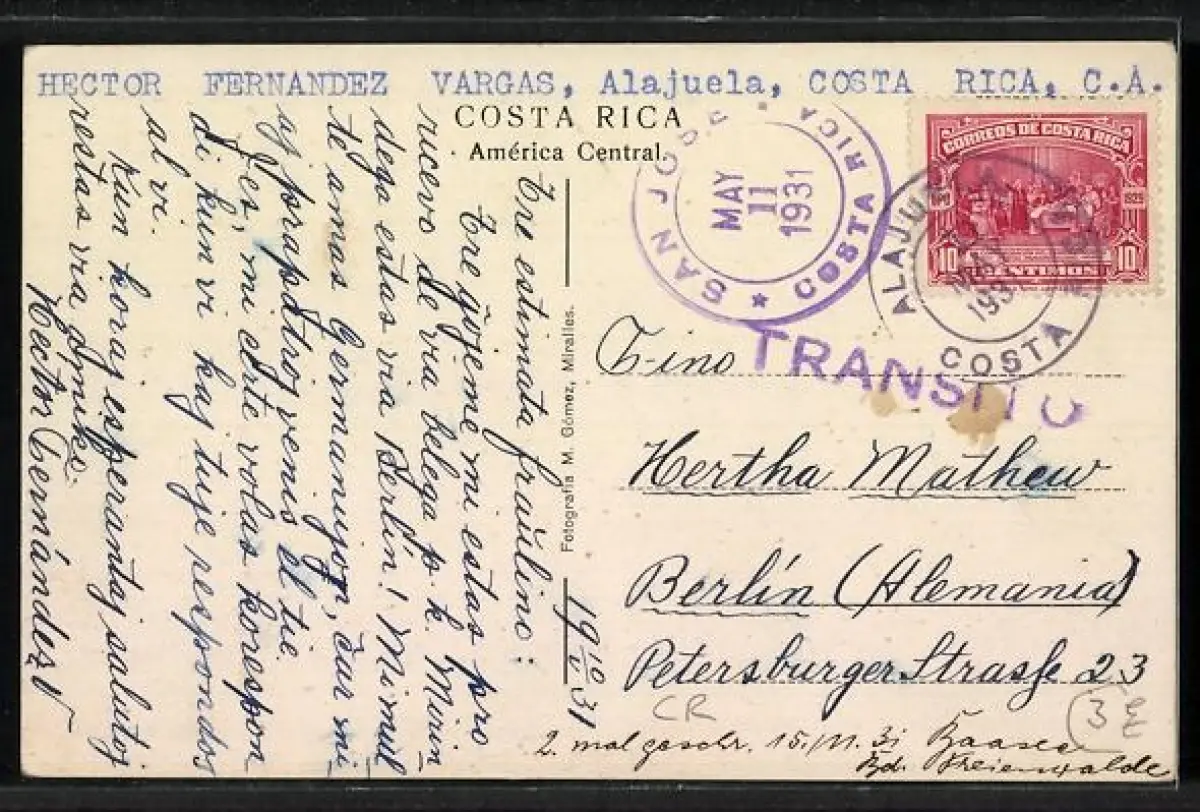 HECTOR FERNANDEZ VARGAS, Alajuela, COSTA RICA, C.A.
COSTA RICA
América Central.
Tre estimata fraŭlino:
Tre ĝojeme mi estas pro
ricevo de via belega p. k. Mirin
dega estas via Berlin! Mi mul
te amas Germanujon, ĉar mi
aj praavo venis el tie.
Jes, mi certe volas korespon
di kun vi kaj tuje respondos
al vi.
Kun koraj esperantaj salutoj
restas via amiko.
Hector Fernández V
Fotografía M. Gómez, Miralles.
19 10/V 31
SAN JOSE
COSTA RICA
MAY
11
1931
TRANSITO
ALAJUELA
MAY
COSTA
CORREOS DE COSTA RICA
10 CENTIMOS 10
F-ino
Hertha Mathew
Berlín (Alemania)
Petersburger Strasse 23
CR
3
2. mal geschr. 15./11. 31
Bd. Freienwalde